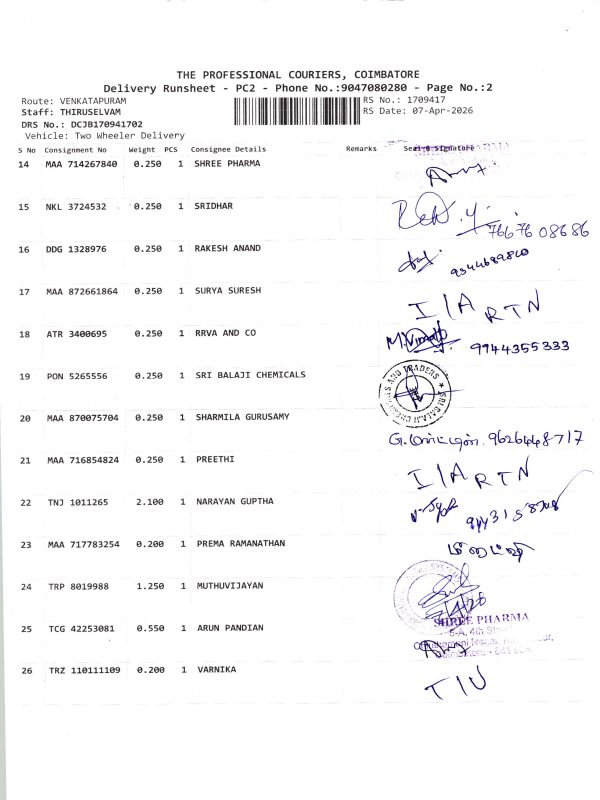 THE PROFESSIONAL COURIERS, COIMBATORE
Delivery Runsheet - PC2 - Phone No.:9047080280 - Page No.:2
Route: VENKATAPURAM RS No.: 1709417
Staff: THIRUSELVAM RS Date: 07-Apr-2026
DRS No.: DCJB170941702
Vehicle: Two Wheeler Delivery
S No Consignment No Weight PCS Consignee Details Remarks Seal & Signature
14 MAA 714267840 0.250 1 SHREE PHARMA
15 NKL 3724532 0.250 1 SRIDHAR
76676 08686
16 DDG 1328976 0.250 1 RAKESH ANAND
17 MAA 872661864 0.250 1 SURYA SURESH I/A RTN
18 ATR 3400695 0.250 1 RRVA AND CO 9944355333
19 PON 5265556 0.250 1 SRI BALAJI CHEMICALS SRI BALAJI CHEMICALS AND TRADERS
20 MAA 870075704 0.250 1 SHARMILA GURUSAMY
9626448717
21 MAA 716854824 0.250 1 PREETHI I/A RTN
22 TNJ 1011265 2.100 1 NARAYAN GUPTHA
23 MAA 717783254 0.200 1 PREMA RAMANATHAN
24 TRP 8019988 1.250 1 MUTHUVIJAYAN
SHREE PHARMA
25 TCG 42253081 0.550 1 ARUN PANDIAN
26 TRZ 110111109 0.200 1 VARNIKA